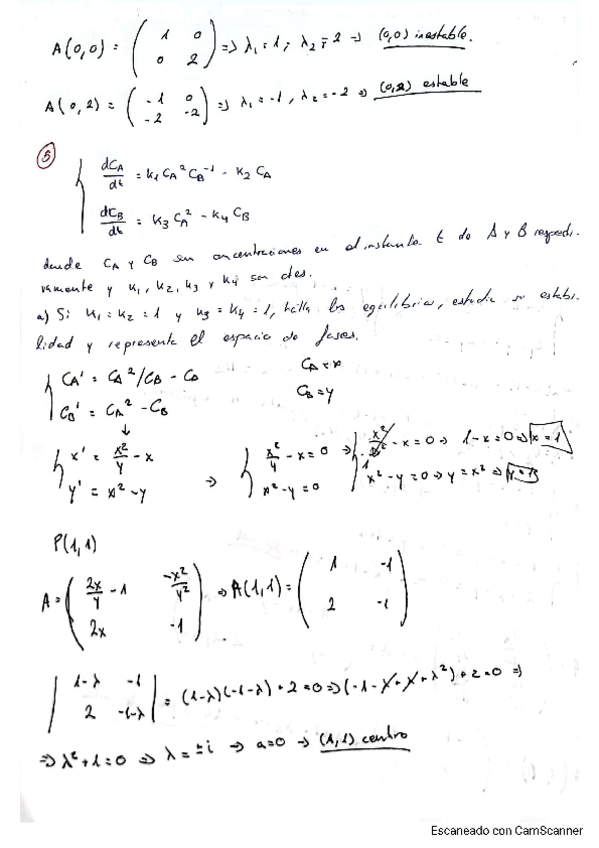 A(0,0) = ( 1 0 ; 0 2 ) => λ₁ = 1; λ₂ = 2 => (0,0) inestable.
A(0,2) = ( -1 0 ; -2 -2 ) => λ₁ = -1, λ₂ = -2 => (0,2) estable
⑤
{ dCA/dt = K1 CA² CB⁻¹ - K2 CA
dCB/dt = K3 CA² - K4 CB
donde CA y CB son concentraciones en el instante t de A y B respecti-
vamente y K1, K2, K3 y K4 son ctes.
a) Si K1 = K2 = 1 y K3 = K4 = 1, halla los equilibrios, estudia su estabi-
lidad y representa el espacio de fases.
{ CA' = CA²/CB - CA
CB' = CA² - CB
CA = x
CB = y
↓
{ x' = x²/y - x
y' = x² - y
=> { x²/y - x = 0
x² - y = 0
=> { x²/x² - x = 0 => 1 - x = 0 => x = 1
x² - y = 0 => y = x² => y = 1
P(1,1)
A = ( 2x/y - 1 -x²/y² ; 2x -1 ) => A(1,1) = ( 1 -1 ; 2 -1 )
| 1-λ -1 ; 2 -1-λ | = (1-λ)(-1-λ) + 2 = 0 => (-1 - λ + λ + λ²) + 2 = 0 =>
=> λ² + 1 = 0 => λ = ± i => a = 0 => (1,1) centro
Escaneado con CamScanner